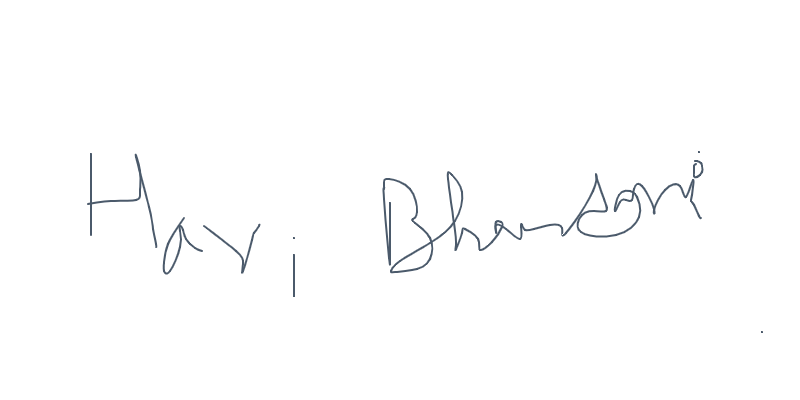 Hari Bhansari